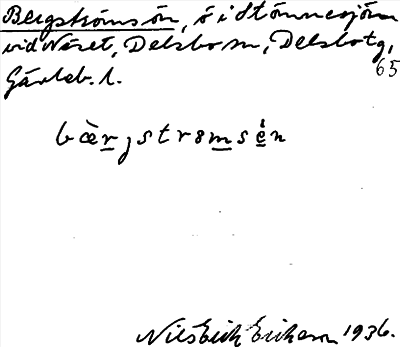 Bergströmsön, ö i Stömnesjön
vid Näset, Delsbo sn, Delsbotg,
Gävleb. l. 65
bæ̀r̲ʒstrøm̲sė̲n
Nils Erik Eriksson 1936.